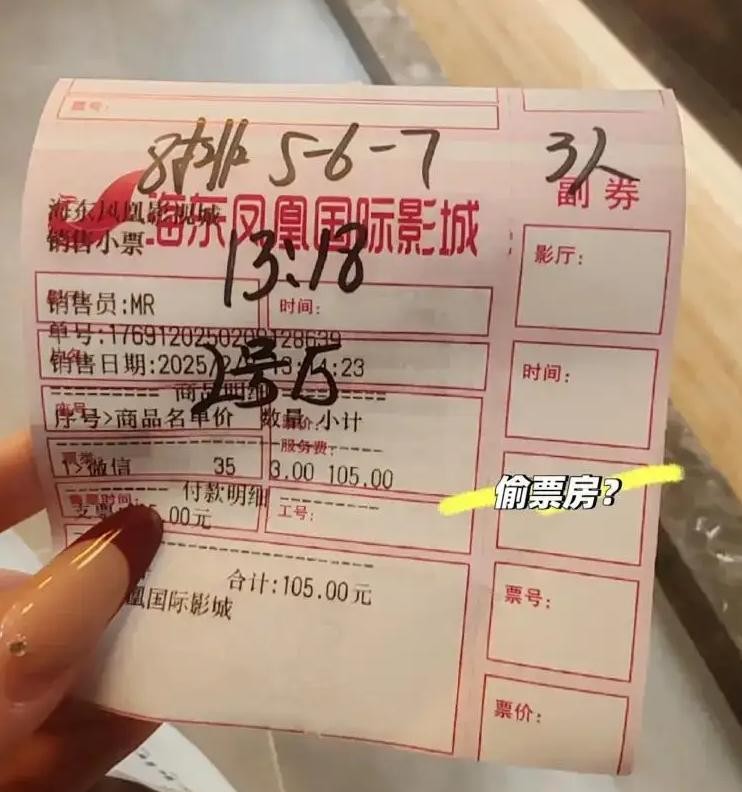 票号:
8排 5-6-7
3人
副券
海东凤凰影视城
海东凤凰国际影城
销售小票
13:18
影厅:
销售员:MR
时间:
单号:176912025020
销售日期:2025
:23
2号厅
时间:
商品明细
序号>商品名单价 数量 小计
服务费:
票类:
1>微信 35 3.00 105.00
偷票房?
付款明细
售票时间:
5.00元
工号:
合计:105.00元
凰国际影城
票号:
票价: